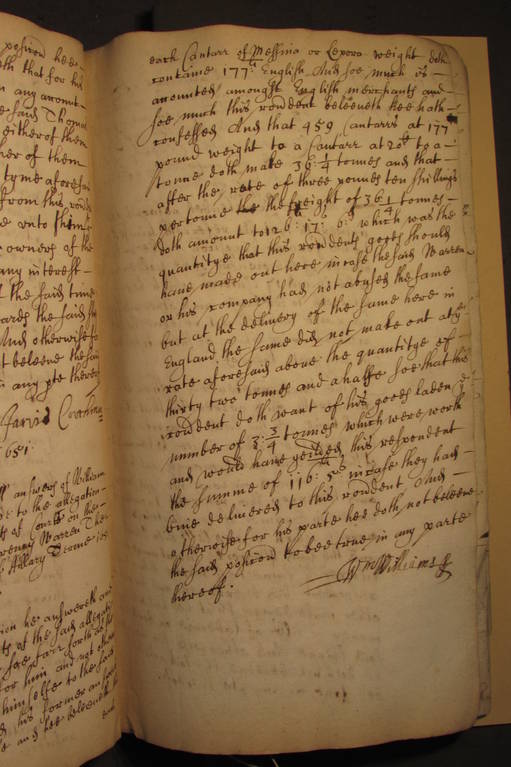 posicon hee
oth that for his
in any amount
e said Thomas
either of them
her of them
tyme aforesaid
from this
e unto
e owners of the
any interest
t the said tyme
wards the said
And otherwise
t beleeve the said
in any pte thereof
Jarvis
1651
answers of William
e to the allegation
of Courte on the
Warren The
Hillary Terme
ion he answereth and
ts of the said allegation
soe farr forth as
for him and not otherwise
himselfe to the said
his former answers
e and hee beleeveth
each Cantarr of Messina or weight doth
containe 177li English And soe much is
accounted amongst English merchants and
soe much this rondent beleeveth hee hath
confessed And that 459 Cantarrs at 177
pound weight to a Cantarr at 20C to a
tonne doth make 36 1/4 tonnes and that
after the rate of three pounds ten shillings
per tonne the freight of 36 1/4 tonnes
doth amount to 126: 17: 6d which was the
quantitye that this rondents goods should
have made out here in case the said Warren
or his company had not abused the same
but at the delivery of the same here in
England the same did not make out at the
rate aforesaid above the quantitye of
thirty two tonnes and a halfe soe that this
rondent doth want of his goods laden the
number of 3: 3/4 tonnes which were worth
and would have yeilded this respondent
the summe of 116: 5s in case they had
bine delivered to this rondent And
otherwise for his parte hee doth not beleeve
the said posicon to bee true in any parte
thereof:
Wm Williams